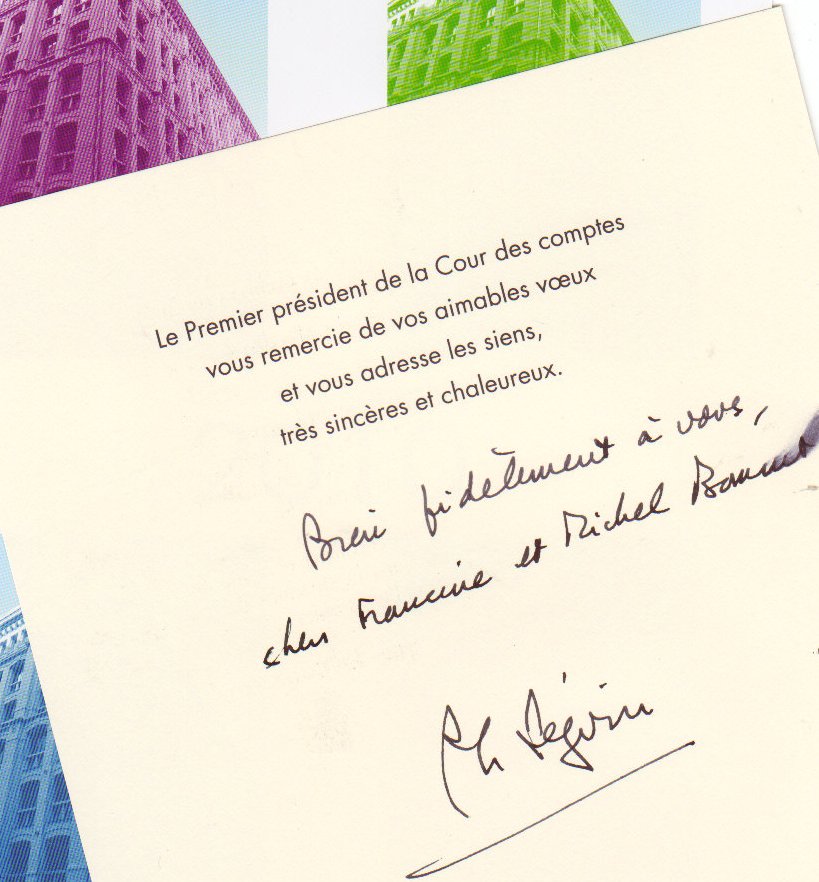 Le Premier président de la Cour des comptes
vous remercie de vos aimables vœux
et vous adresse les siens,
très sincères et chaleureux.
Bien fidèlement à vous,
chers Francine et Michel
Ph Séguin